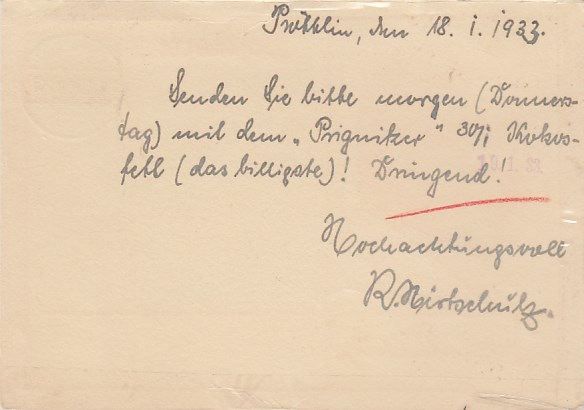 Pröttlin, den 18. I. 1933.
Senden Sie bitte morgen (Donners-
tag) mit dem „Prignitzer" 30 ℔ Kokos-
fett (das billigste)! Dringend!
19.1.33
Hochachtungsvoll
R. Hirtschulz.